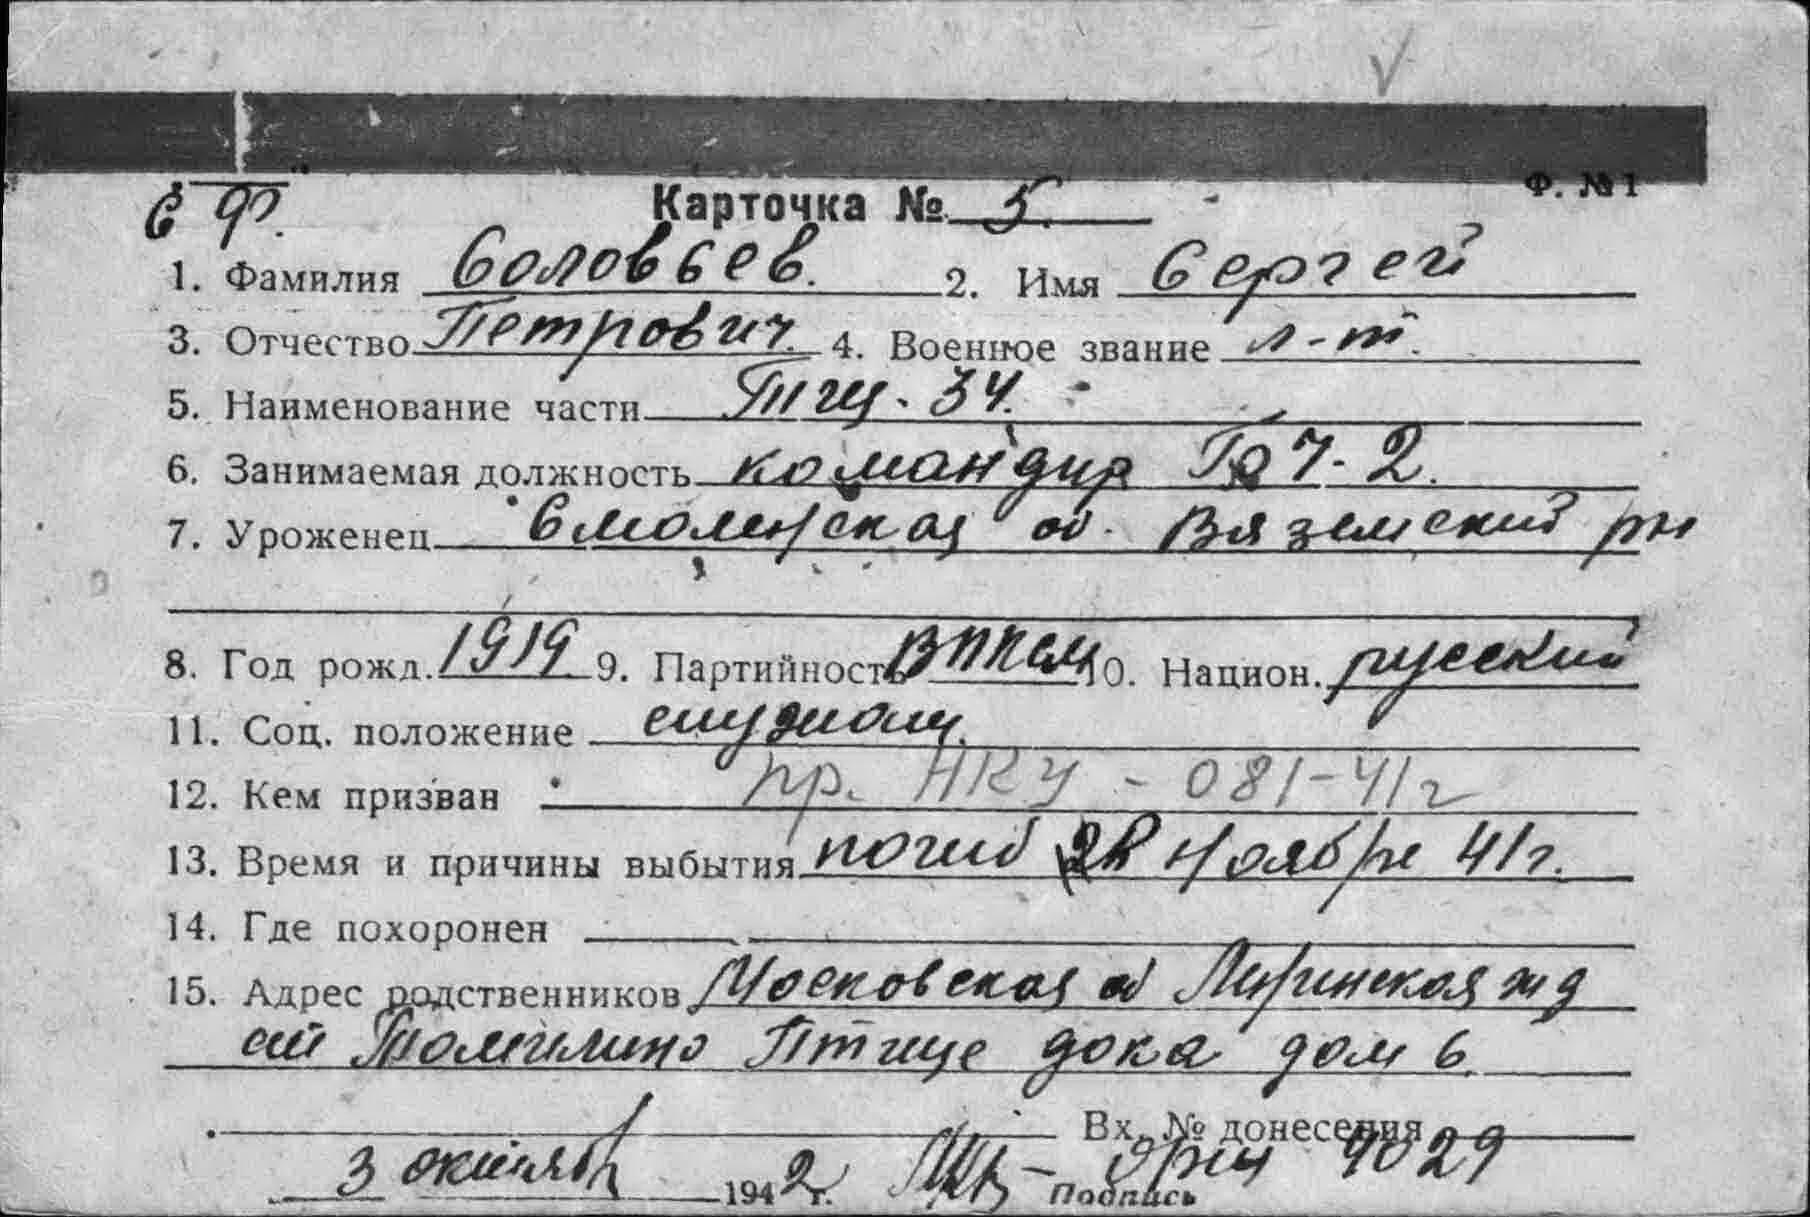 С Ф.
Ф. № 1
Карточка № 5.
1. Фамилия Соловьев. 2. Имя Сергей
3. Отчество Петрович. 4. Военное звание л-т.
5. Наименование части 34.
6. Занимаемая должность командир БЧ-2.
7. Уроженец Смоленская об. Вяземский рн
8. Год рожд. 1919 9. Партийность 10. Национ. русский
11. Соц. положение
12. Кем призван пр. НКУ - 081-41г
13. Время и причины выбытия погиб ноября 41г.
14. Где похоронен
15. Адрес родственников Московская об ж д
ст Томилино Птице дом 6.
Вх. № донесения 4029
3 октября 1942 г. Подпись